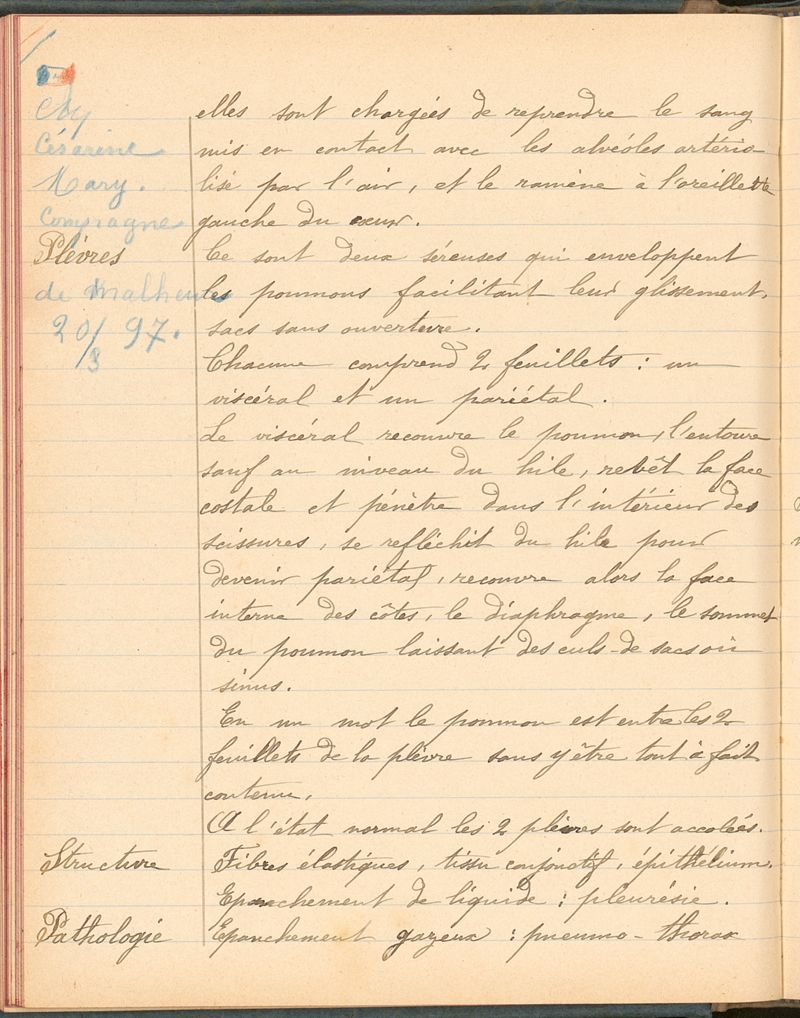 elles sont chargées de reprendre le sang
Césarine
mis en contact avec les alvéoles artério-
Mary.
lisé par l'air, et le ramène à l'oreillette
Compagne
gauche du cœur.
Plèvres
Ce sont deux séreuses qui enveloppent
de Malheur
les poumons facilitant leur glissement,
20/3 97.
sacs sans ouverture.
Chacune comprend 2 feuillets : un
viscéral et un pariétal.
Le viscéral recouvre le poumon, l'entoure
sauf au niveau du hile, revêt la face
costale et pénètre dans l'intérieur des
scissures, se refléchit du hile pour
devenir pariétal, recouvre alors la face
interne des côtes, le diaphragme, le sommet
du poumon laissant des culs-de sacs ou
sinus.
En un mot le poumon est entre les 2
feuillets de la plèvre sans y être tout à fait
contenu.
A l'état normal les 2 plèvres sont accolées.
Structure
Fibres élastiques, tissu conjonctif, épithélium.
Epanchement de liquide : pleurésie.
Pathologie
Epanchement gazeux : pneumo-thorax